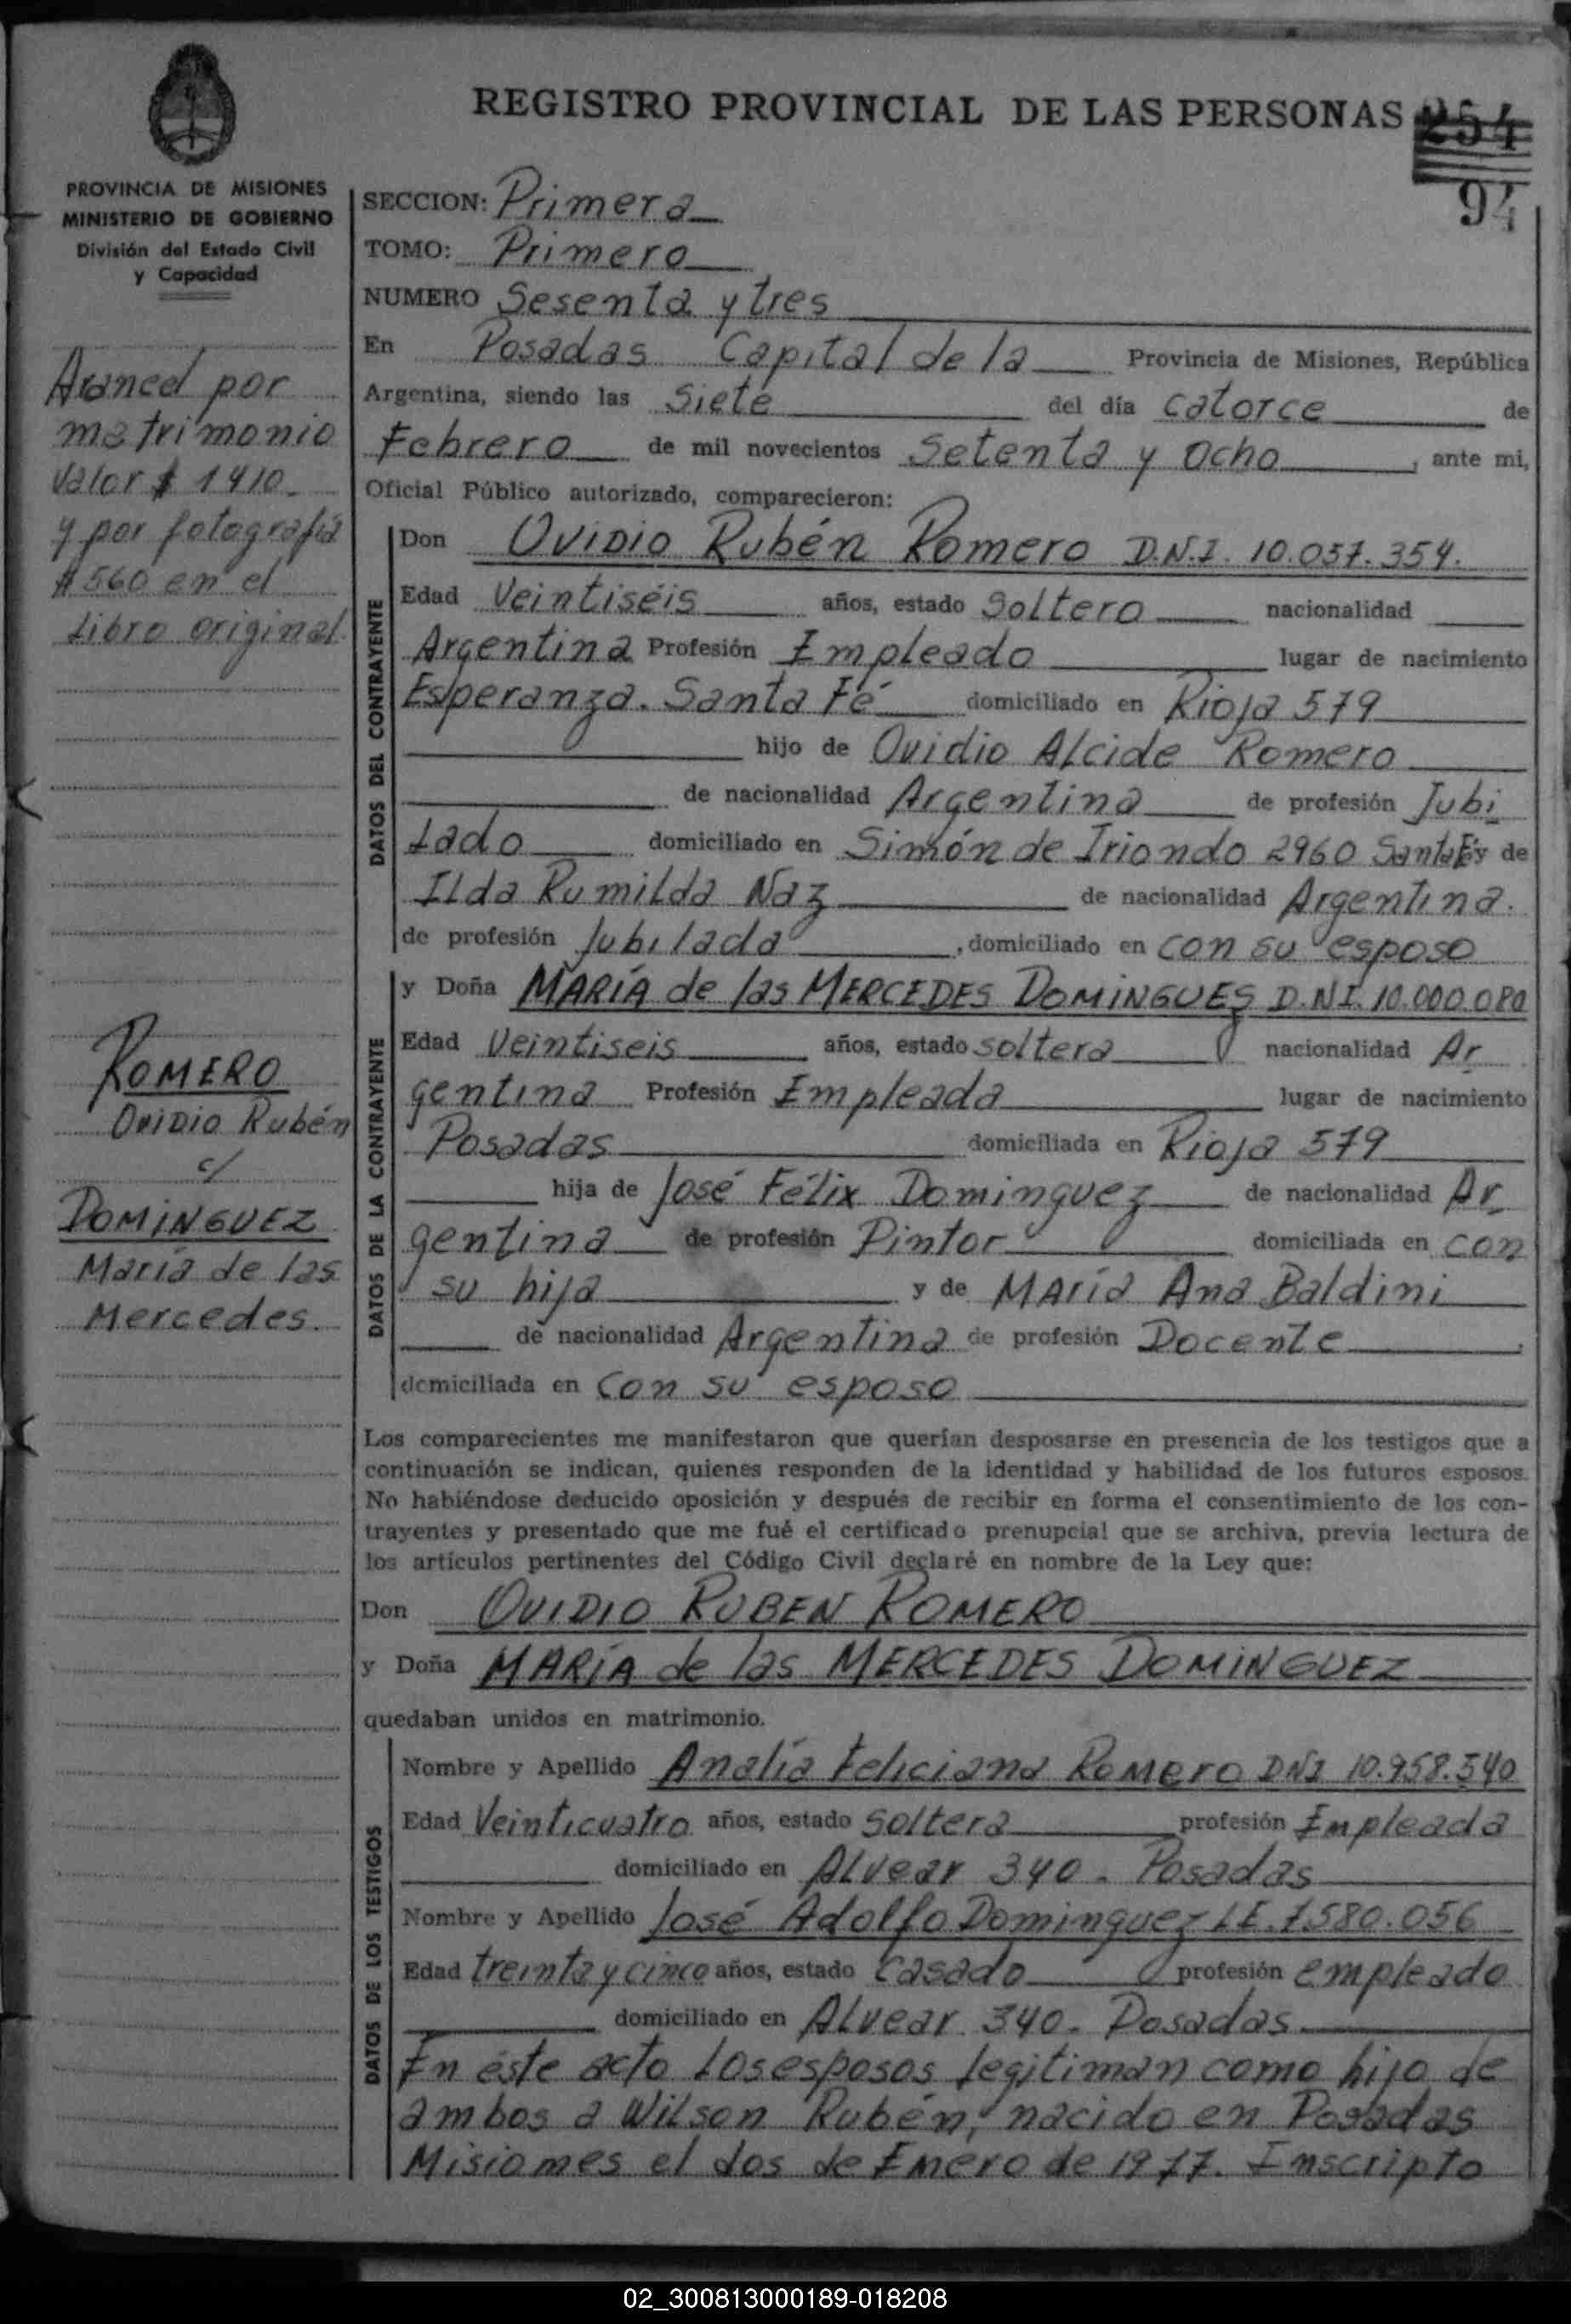 REGISTRO PROVINCIAL DE LAS PERSONAS
254
94
PROVINCIA DE MISIONES
MINISTERIO DE GOBIERNO
División del Estado Civil
y Capacidad
Arancel por
matrimonio
Valor $ 1410.
y por fotografía
$ 560 en el
Libro original.
ROMERO
Ovidio Rubén
c/
DOMINGUEZ
María de las
Mercedes.
SECCION: Primera
TOMO: Primero
NUMERO Sesenta y tres
En Posadas Capital de la Provincia de Misiones, República
Argentina, siendo las Siete del día catorce de
Febrero de mil novecientos Setenta y Ocho, ante mi,
Oficial Público autorizado, comparecieron:
DATOS DEL CONTRAYENTE
Don Ovidio Rubén Romero D.N.I. 10.057.354.
Edad Veintiséis años, estado Soltero nacionalidad
Argentina Profesión Empleado lugar de nacimiento
Esperanza. Santa Fé domiciliado en Rioja 579
hijo de Ovidio Alcide Romero
de nacionalidad Argentina de profesión Jubi
lado domiciliado en Simón de Iriondo 2960 Santa Fé y de
Ilda Rumilda Naz de nacionalidad Argentina.
de profesión Jubilada, domiciliado en con su esposo
DATOS DE LA CONTRAYENTE
y Doña MARÍA de las MERCEDES DOMINGUES D.N.I. 10.000.080
Edad Veintiseis años, estado soltera nacionalidad Ar
gentina Profesión Empleada lugar de nacimiento
Posadas domiciliada en Rioja 579
hija de José Félix Dominguez de nacionalidad Ar
gentina de profesión Pintor domiciliada en con
su hija y de María Ana Baldini
de nacionalidad Argentina de profesión Docente,
domiciliada en Con su esposo
Los comparecientes me manifestaron que querían desposarse en presencia de los testigos que a
continuación se indican, quienes responden de la identidad y habilidad de los futuros esposos.
No habiéndose deducido oposición y después de recibir en forma el consentimiento de los con-
trayentes y presentado que me fué el certificado prenupcial que se archiva, previa lectura de
los artículos pertinentes del Código Civil declaré en nombre de la Ley que:
Don OVIDIO RUBEN ROMERO
y Doña MARÍA de las MERCEDES DOMINGUEZ
quedaban unidos en matrimonio.
DATOS DE LOS TESTIGOS
Nombre y Apellido Analía Feliciana Romero DNI 10.958.540
Edad Veinticuatro años, estado Soltera profesión Empleada
domiciliado en Alvear 340. Posadas
Nombre y Apellido José Adolfo Dominguez L.E. 7.580.056
Edad treinta y cinco años, estado Casado profesión empleado
domiciliado en Alvear 340. Posadas.
En éste acto los esposos legitiman como hijo de
ambos a Wilson Rubén, nacido en Posadas
Misiones el dos de Enero de 1977. Inscripto
02_300813000189-018208